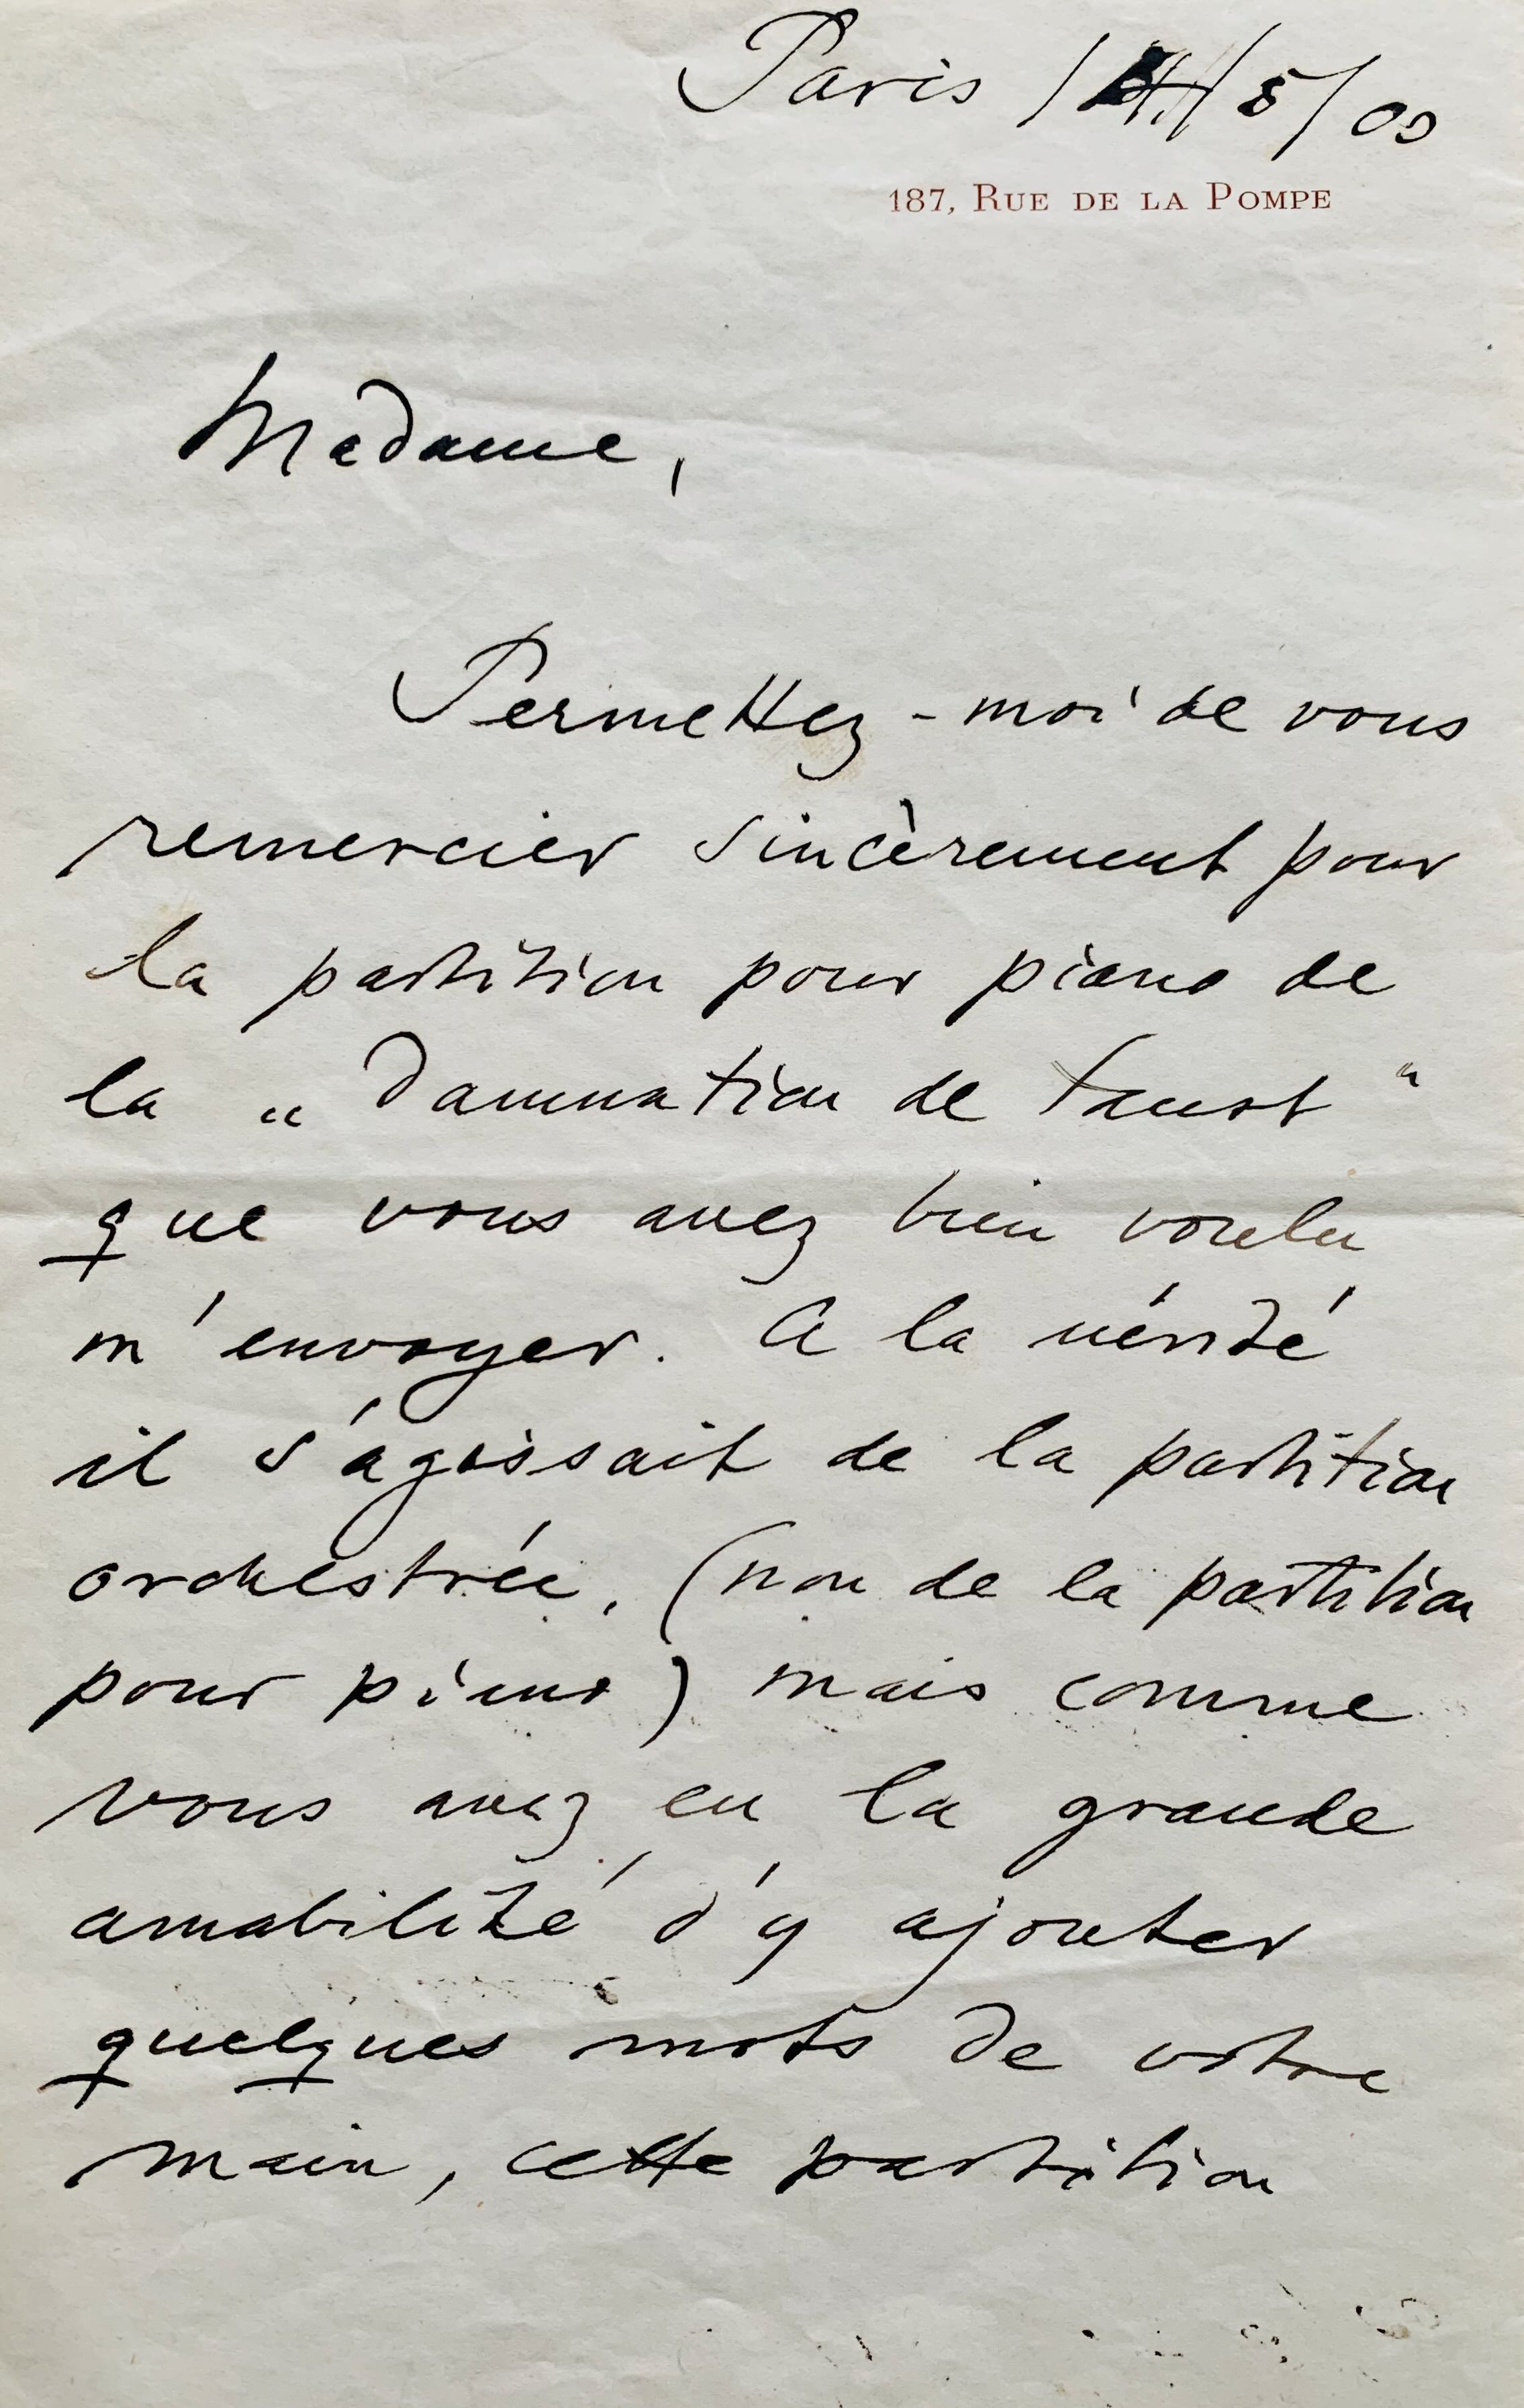 Paris / 5/00
187, Rue de la Pompe
Madame,
Permettez-moi de vous
remercier sincèrement pour
la partition pour piano de
la „ Damnation de Faust “
que vous avez bien voulu
m'envoyer. A la vérité
il s'agissait de la partition
orchestrée, (non de la partition
pour piano) mais comme
vous avez eu la grande
amabilité d'y ajouter
quelques mots de votre
main, cette partition